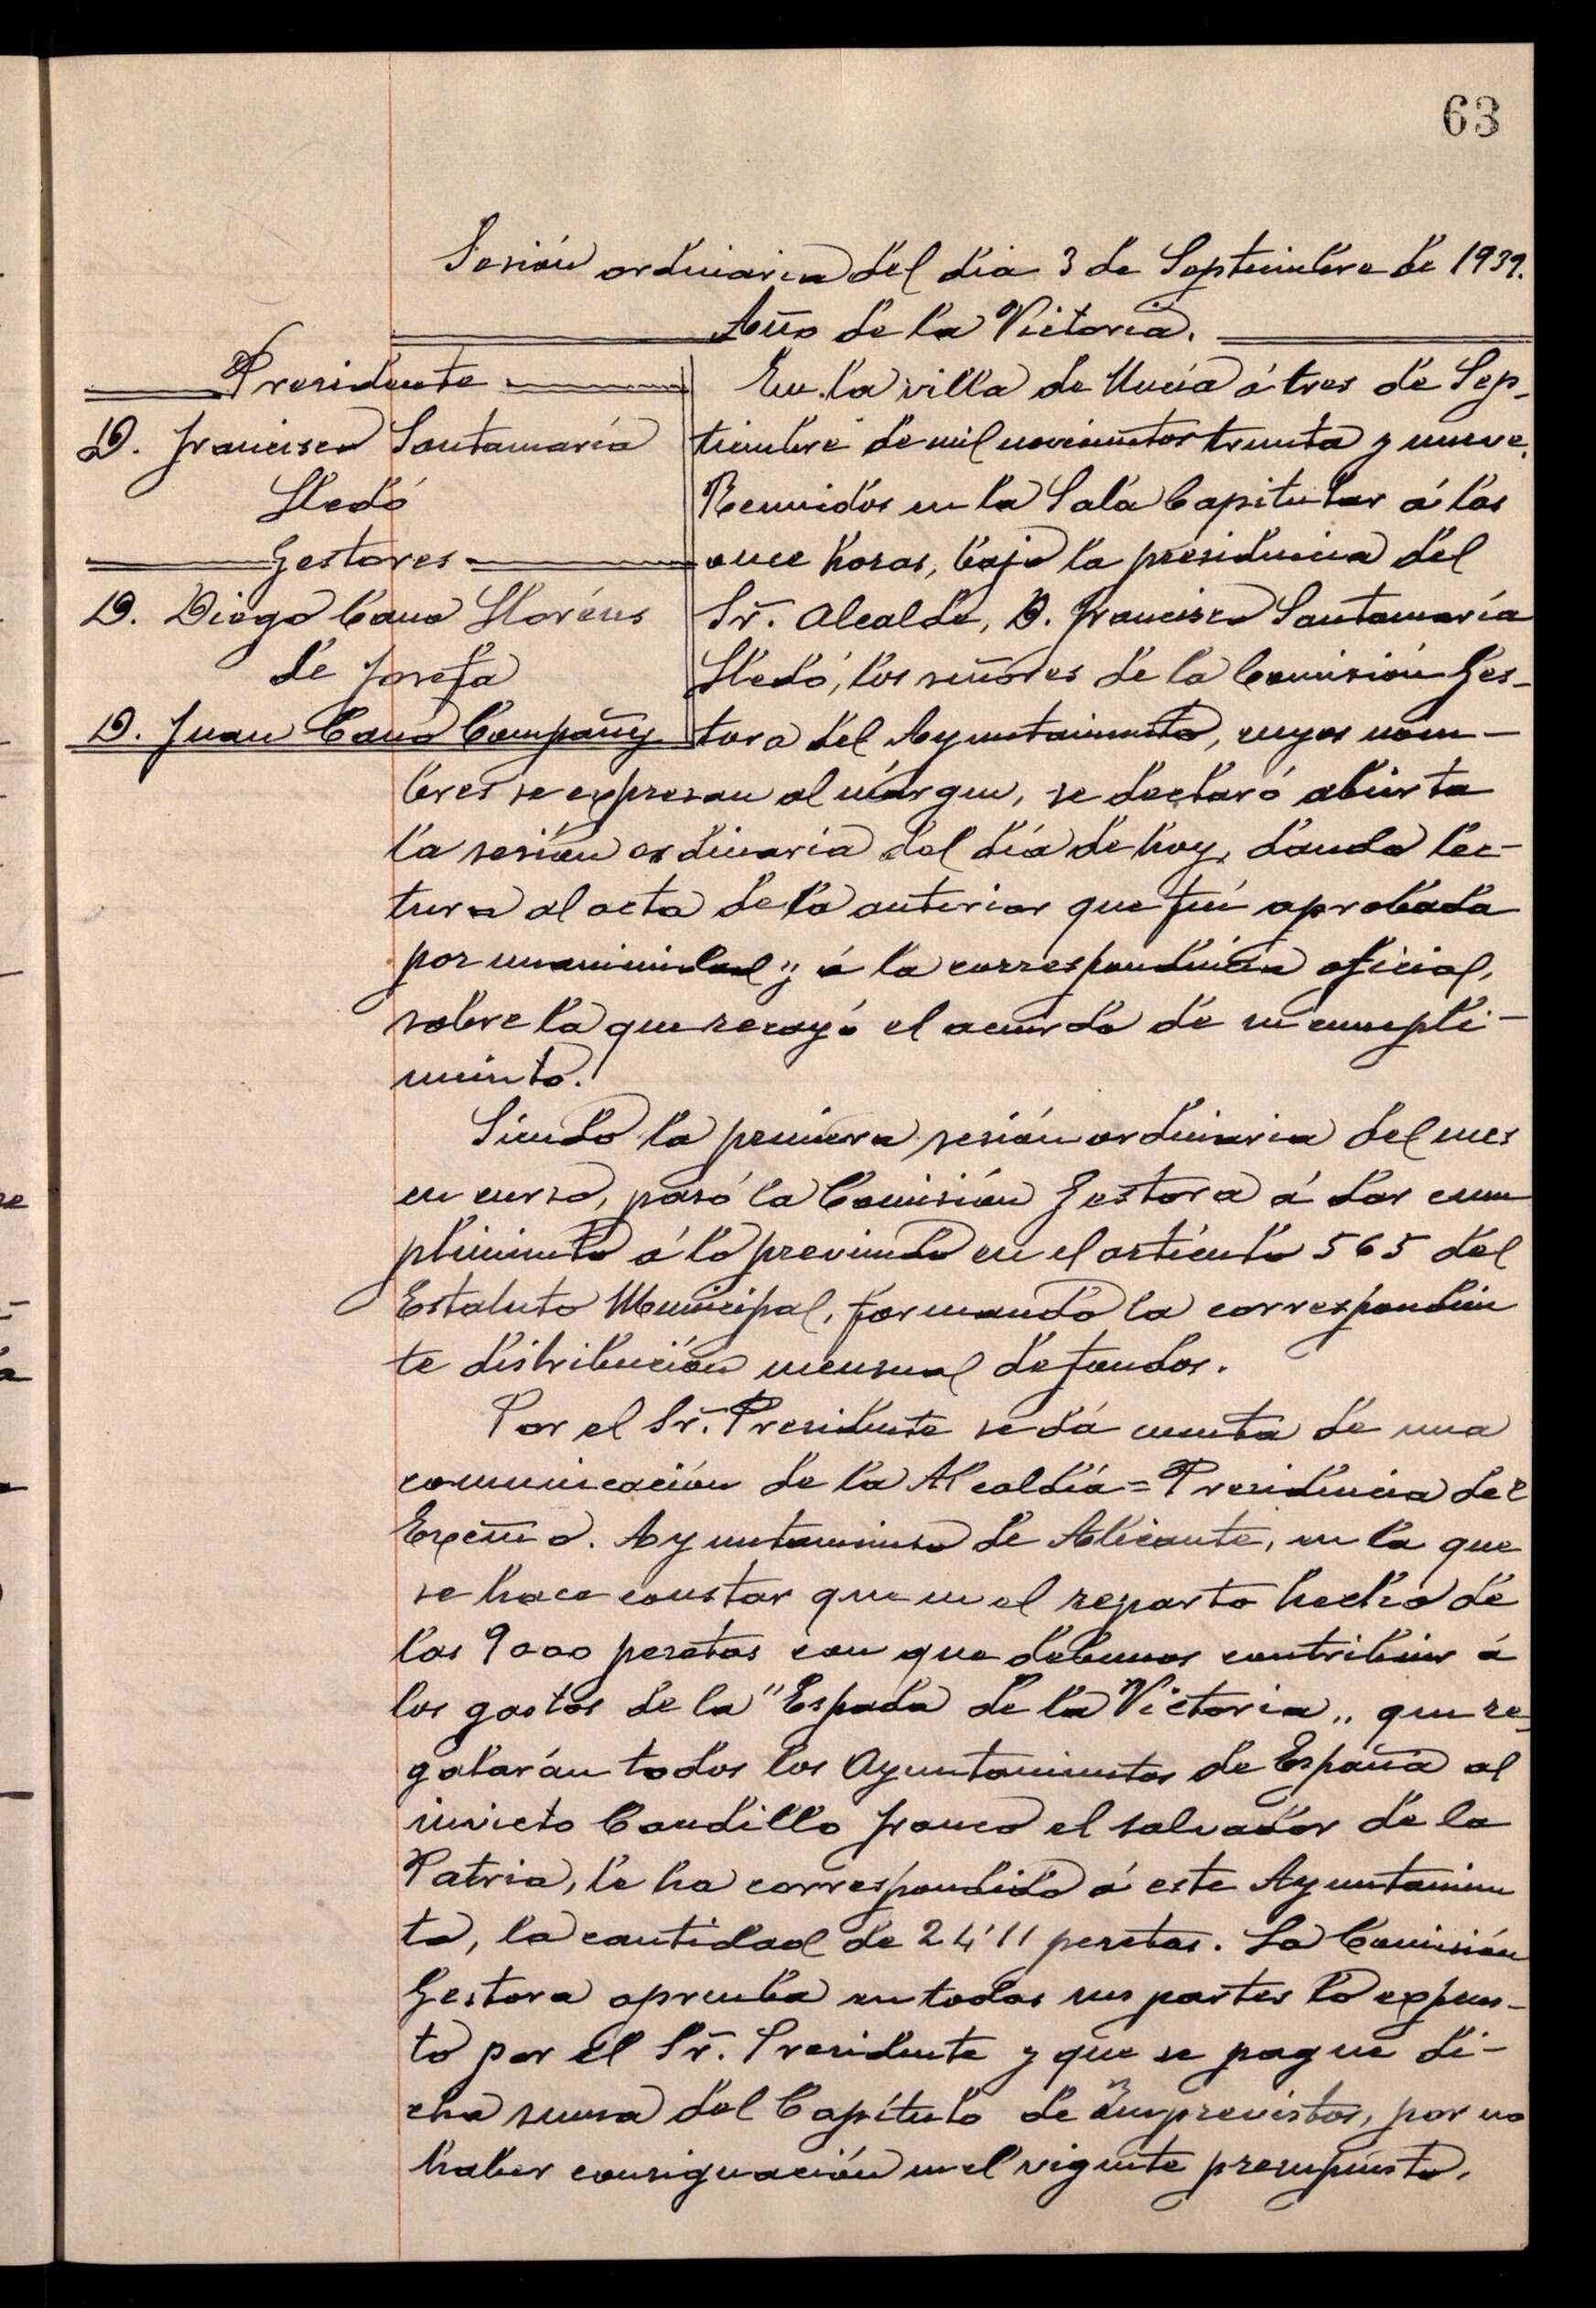 63
Sesión ordinaria del dia 3 de Septiembre de 1939.
Año de la Victoria.
Presidente
D. Francisco Santamaría
Lledó
Gestores
D. Diego Cano Lloréns
de Josefa
D. Juan Cano Compañy
En la villa de Nucía á tres de Sep-
tiembre de mil novecientos treinta y nueve.
Reunidos en la Sala Capitular á las
once horas, bajo la presidencia del
Sr. Alcalde, D. Francisco Santamaría
Lledó, los señores de la Comisión Ges-
tora del Ayuntamiento, cuyos nom-
bres se expresan al márgen, se declaró abierta
la sesión ordinaria del día de hoy, dando lec-
tura al acta de la anterior que fué aprobada
por unanimidad y á la correspondencia oficial,
sobre la que recayó el acuerdo de su cumpli-
miento.
Siendo la primera sesión ordinaria del mes
en curso, pasó la Comisión Gestora á dar cum
plimiento á lo prevenido en el artículo 565 del
Estatuto Municipal, formando la correspondien
te distribución mensual de fondos.
Por el Sr. Presidente se dá cuenta de una
comunicación de la Alcaldía=Presidencia del
Excmo. Ayuntamiento de Alicante, en la que
se hace constar que en el reparto hecho de
las 9000 pesetas con que debemos contribuir á
los gastos de la "Espada de la Victoria" que re-
galarán todos los Ayuntamientos de España al
invicto Caudillo Franco el salvador de la
Patria, le ha correspondido á este Ayuntamien
to, la cantidad de 24'11 pesetas. La Comisión
Gestora aprueba en todas sus partes lo expues-
to por el Sr. Presidente y que se pague di-
cha suma del Capítulo de Imprevistos, por no
haber consignación en el vigente presupuesto.